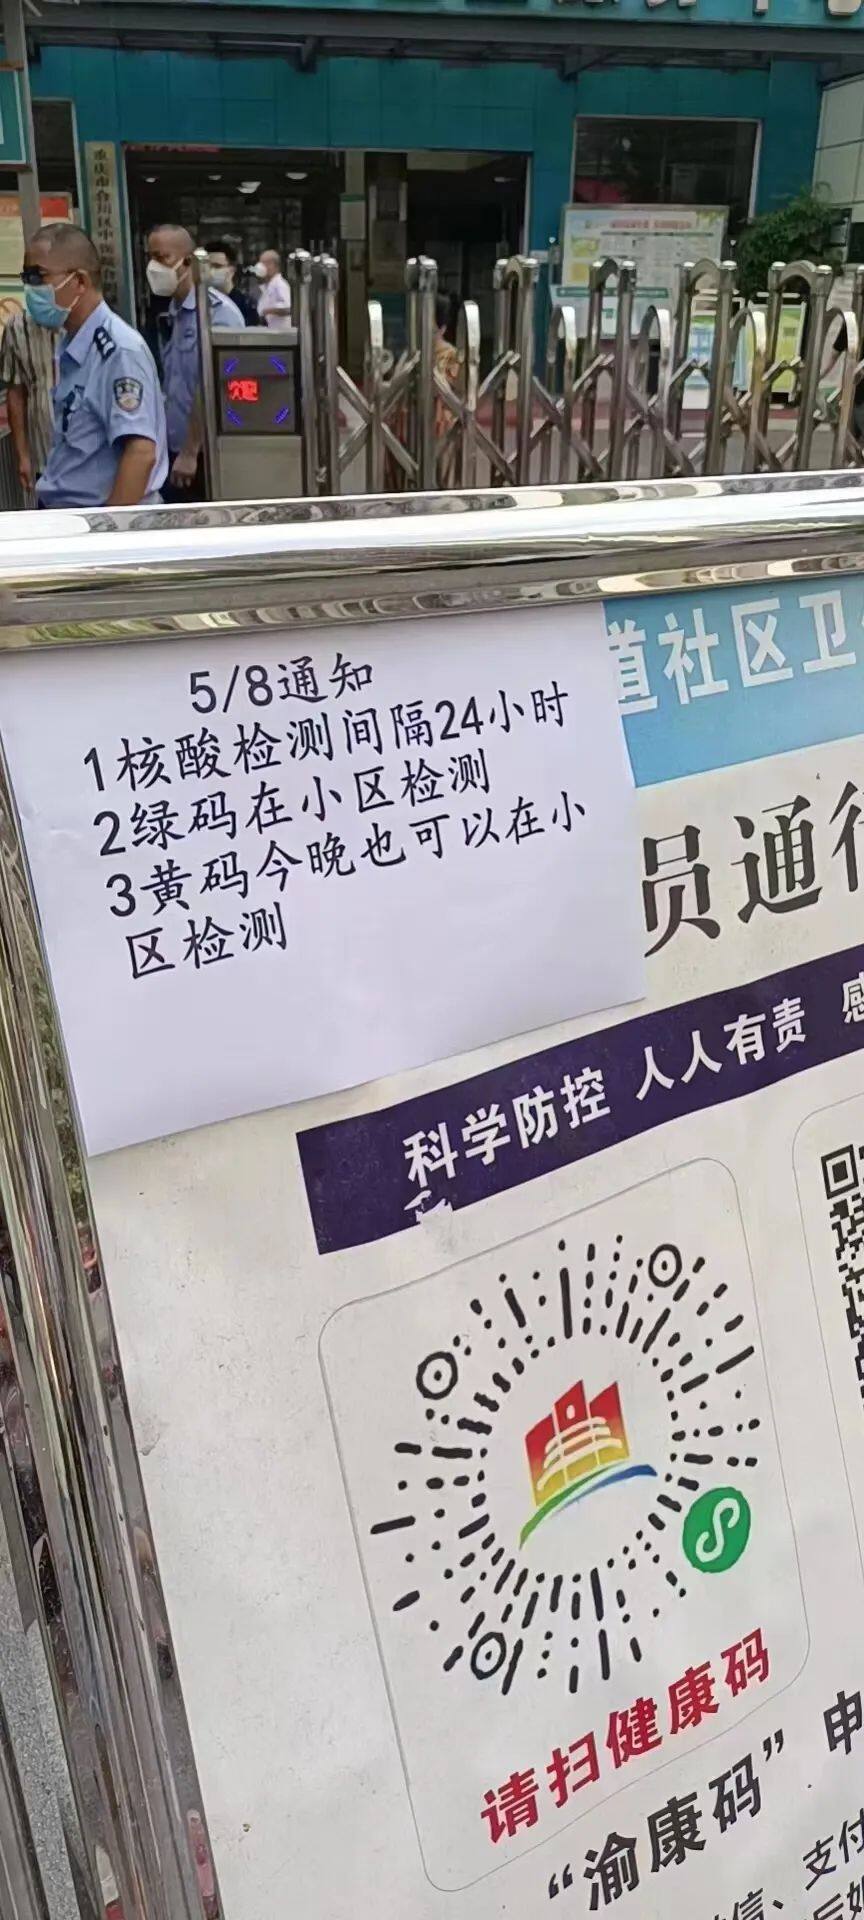 5/8通知
1核酸检测间隔24小时
2绿码在小区检测
3黄码今晚也可以在小
区检测
道社区卫
员通行
科学防控 人人有责 感
请扫健康码
“渝康码”申
信、支付